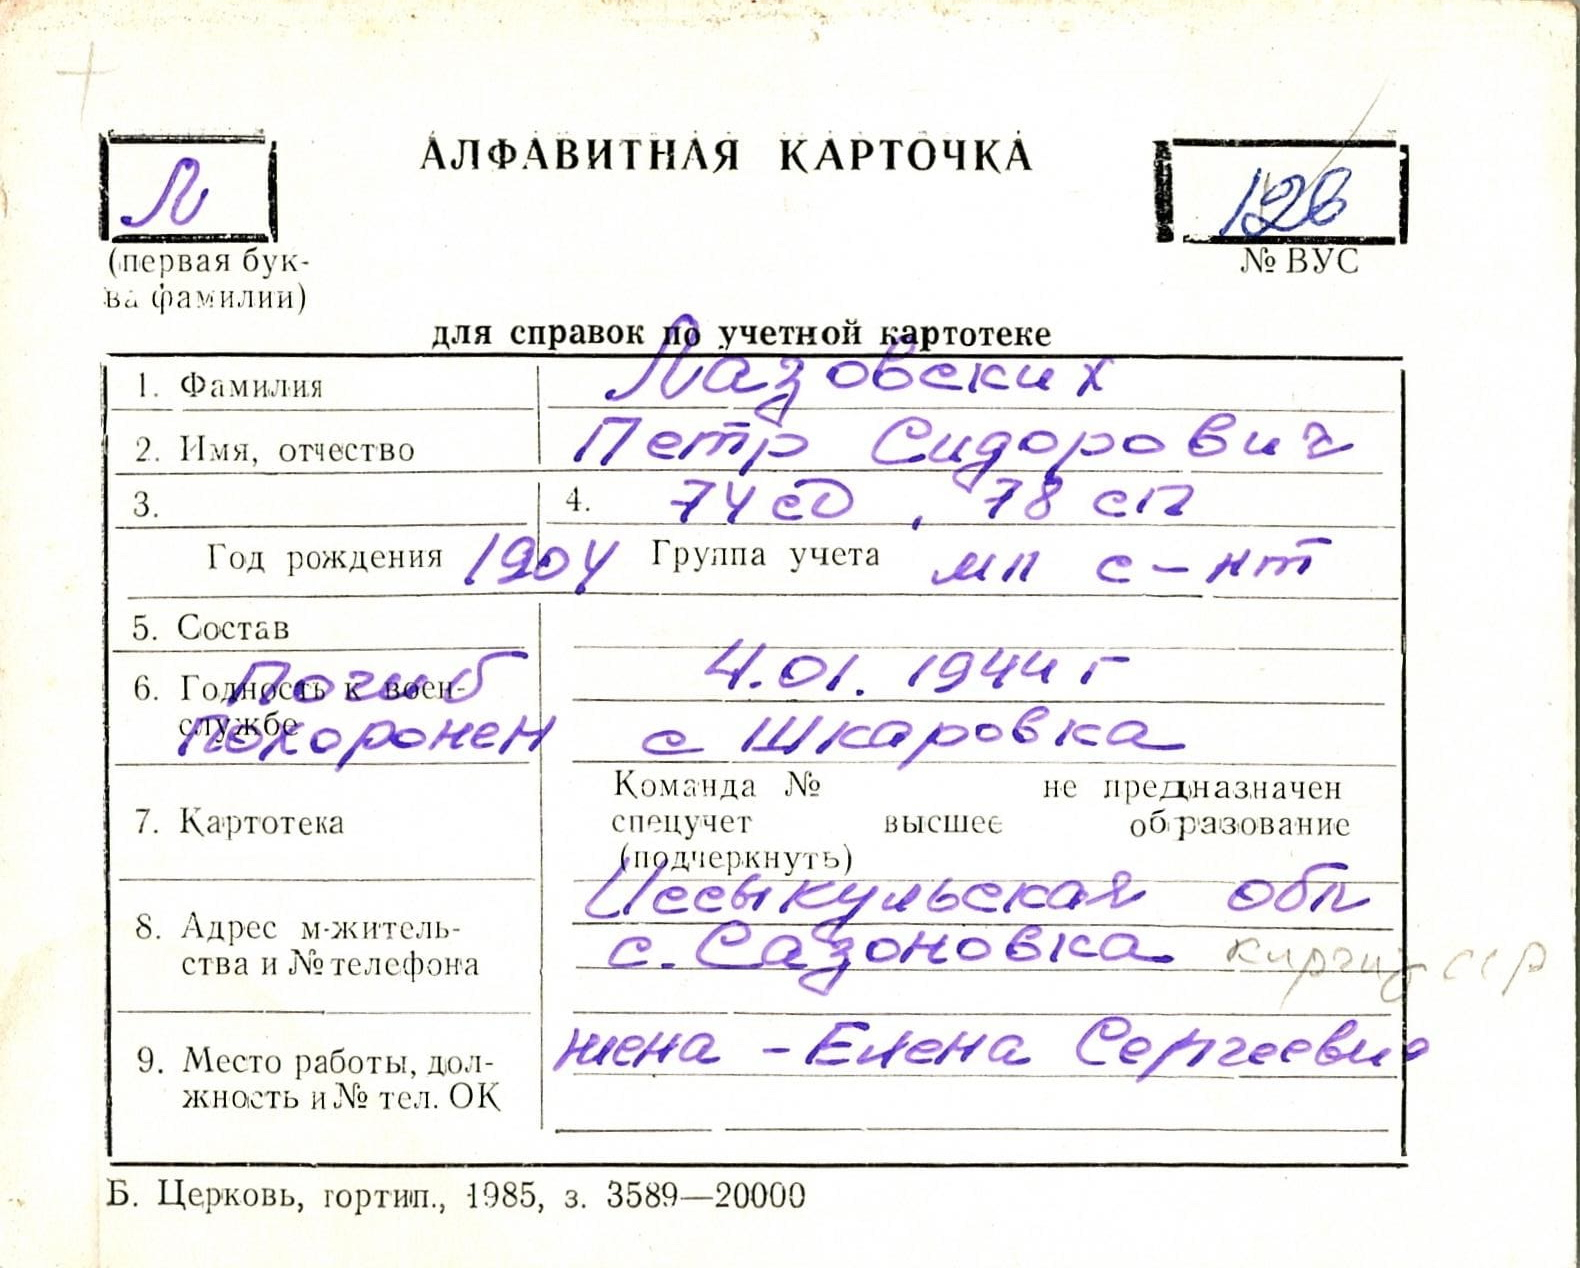 АЛФАВИТНАЯ КАРТОЧКА
Л
(первая бук-
ва фамилии)
126
№ ВУС
для справок по учетной картотеке
1. Фамилия Лазовских
2. Имя, отчество Петр Сидорович
3. 4. 74 сд, 78 сп
Год рождения 1904 Группа учета мл с-нт
5. Состав
6. Годность к воен- Погиб 4.01.1944 г
службе Похоронен с Шкаровка
7. Картотека
Команда № не предназначен
спецучет высшее образование
(подчеркнуть)
8. Адрес м-житель-
ства и № телефона
Иссыкульская обл
с. Сазоновка киргиз ССР
9. Место работы, дол-
жность и № тел. ОК
жена - Елена Сергеевна
Б. Церковь, гортип., 1985, з. 3589—20000